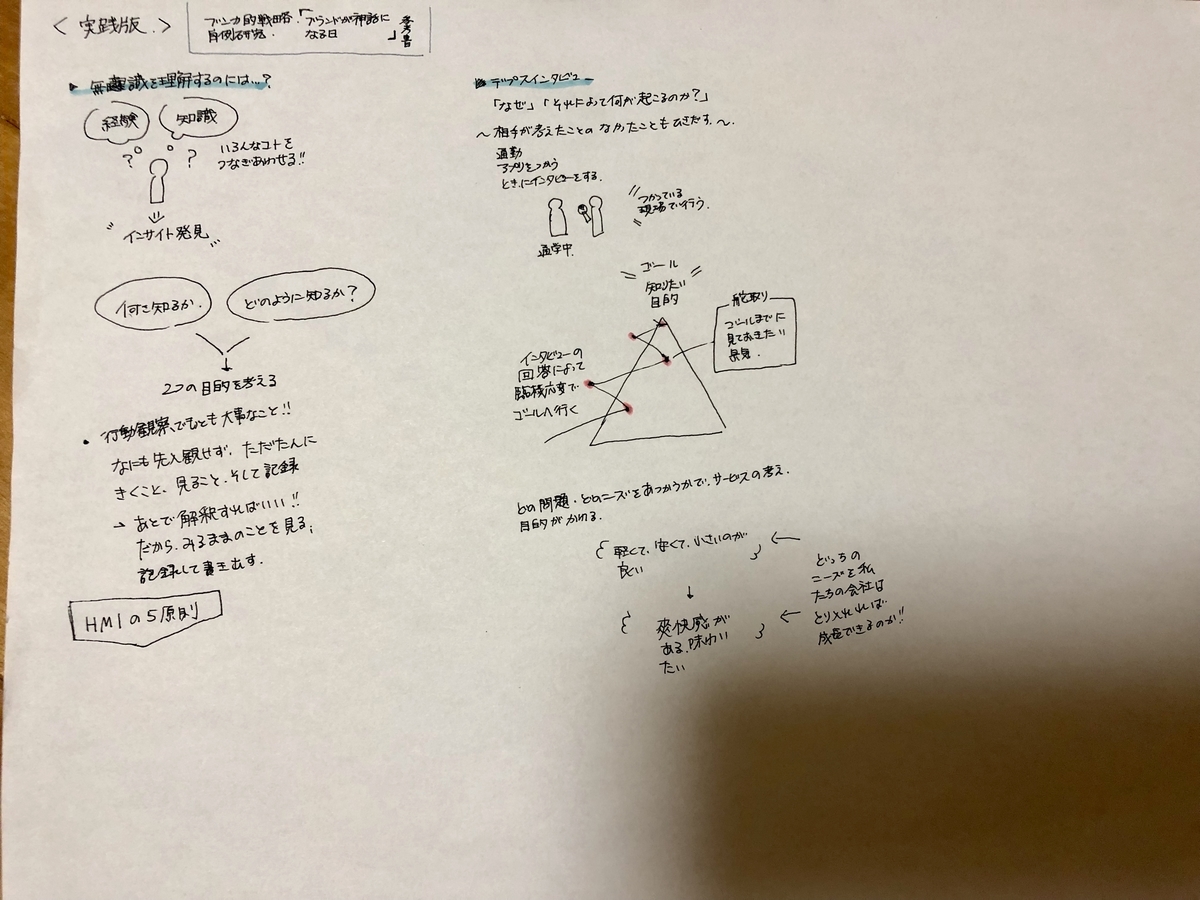 〈実践版.〉
ブンカ的戦略.「ブランドが神話に
事例研究. なる日」
参考書
▶ 無意識を理解するのには…?
経験
知識
? ?
いろんなコトを
つなぎあわせる!!
"インサイト発見"
何を知るか.
どのように知るか?
2つの目的を考える
• 行動観察、でもとも大事なこと!!
なにも先入観せず、ただたんに
きくこと、見ること、そして記録
→ あとで解釈すればいい!!
だから、みるままのことを見る;
記録して書き出す.
HMIの5原則
デプスインタビュー
「なぜ」「それによって何が起こるのか?」
〜相手が考えたことの なかったこともひきだす.〜.
通勤
アプリをつかう
ときにインタビューをする.
つかっている
現場で行う.
通学中.
ゴール
知りたい
目的
舵取り
ゴールまでに
見ておきたい
景気.
インタビューの
回答によって
臨機応変で
ゴールへ行く
どの問題・どのニーズをあつかうかで、サービスの考え.
目的がかわる.
{ 軽くて、安くて、小さいのが
良い } ←
↓
{ 爽快感が
ある.味わい
たい } ←
どっちの
ニーズを私
たちの会社は
とり入れれば
成長できるのか!!